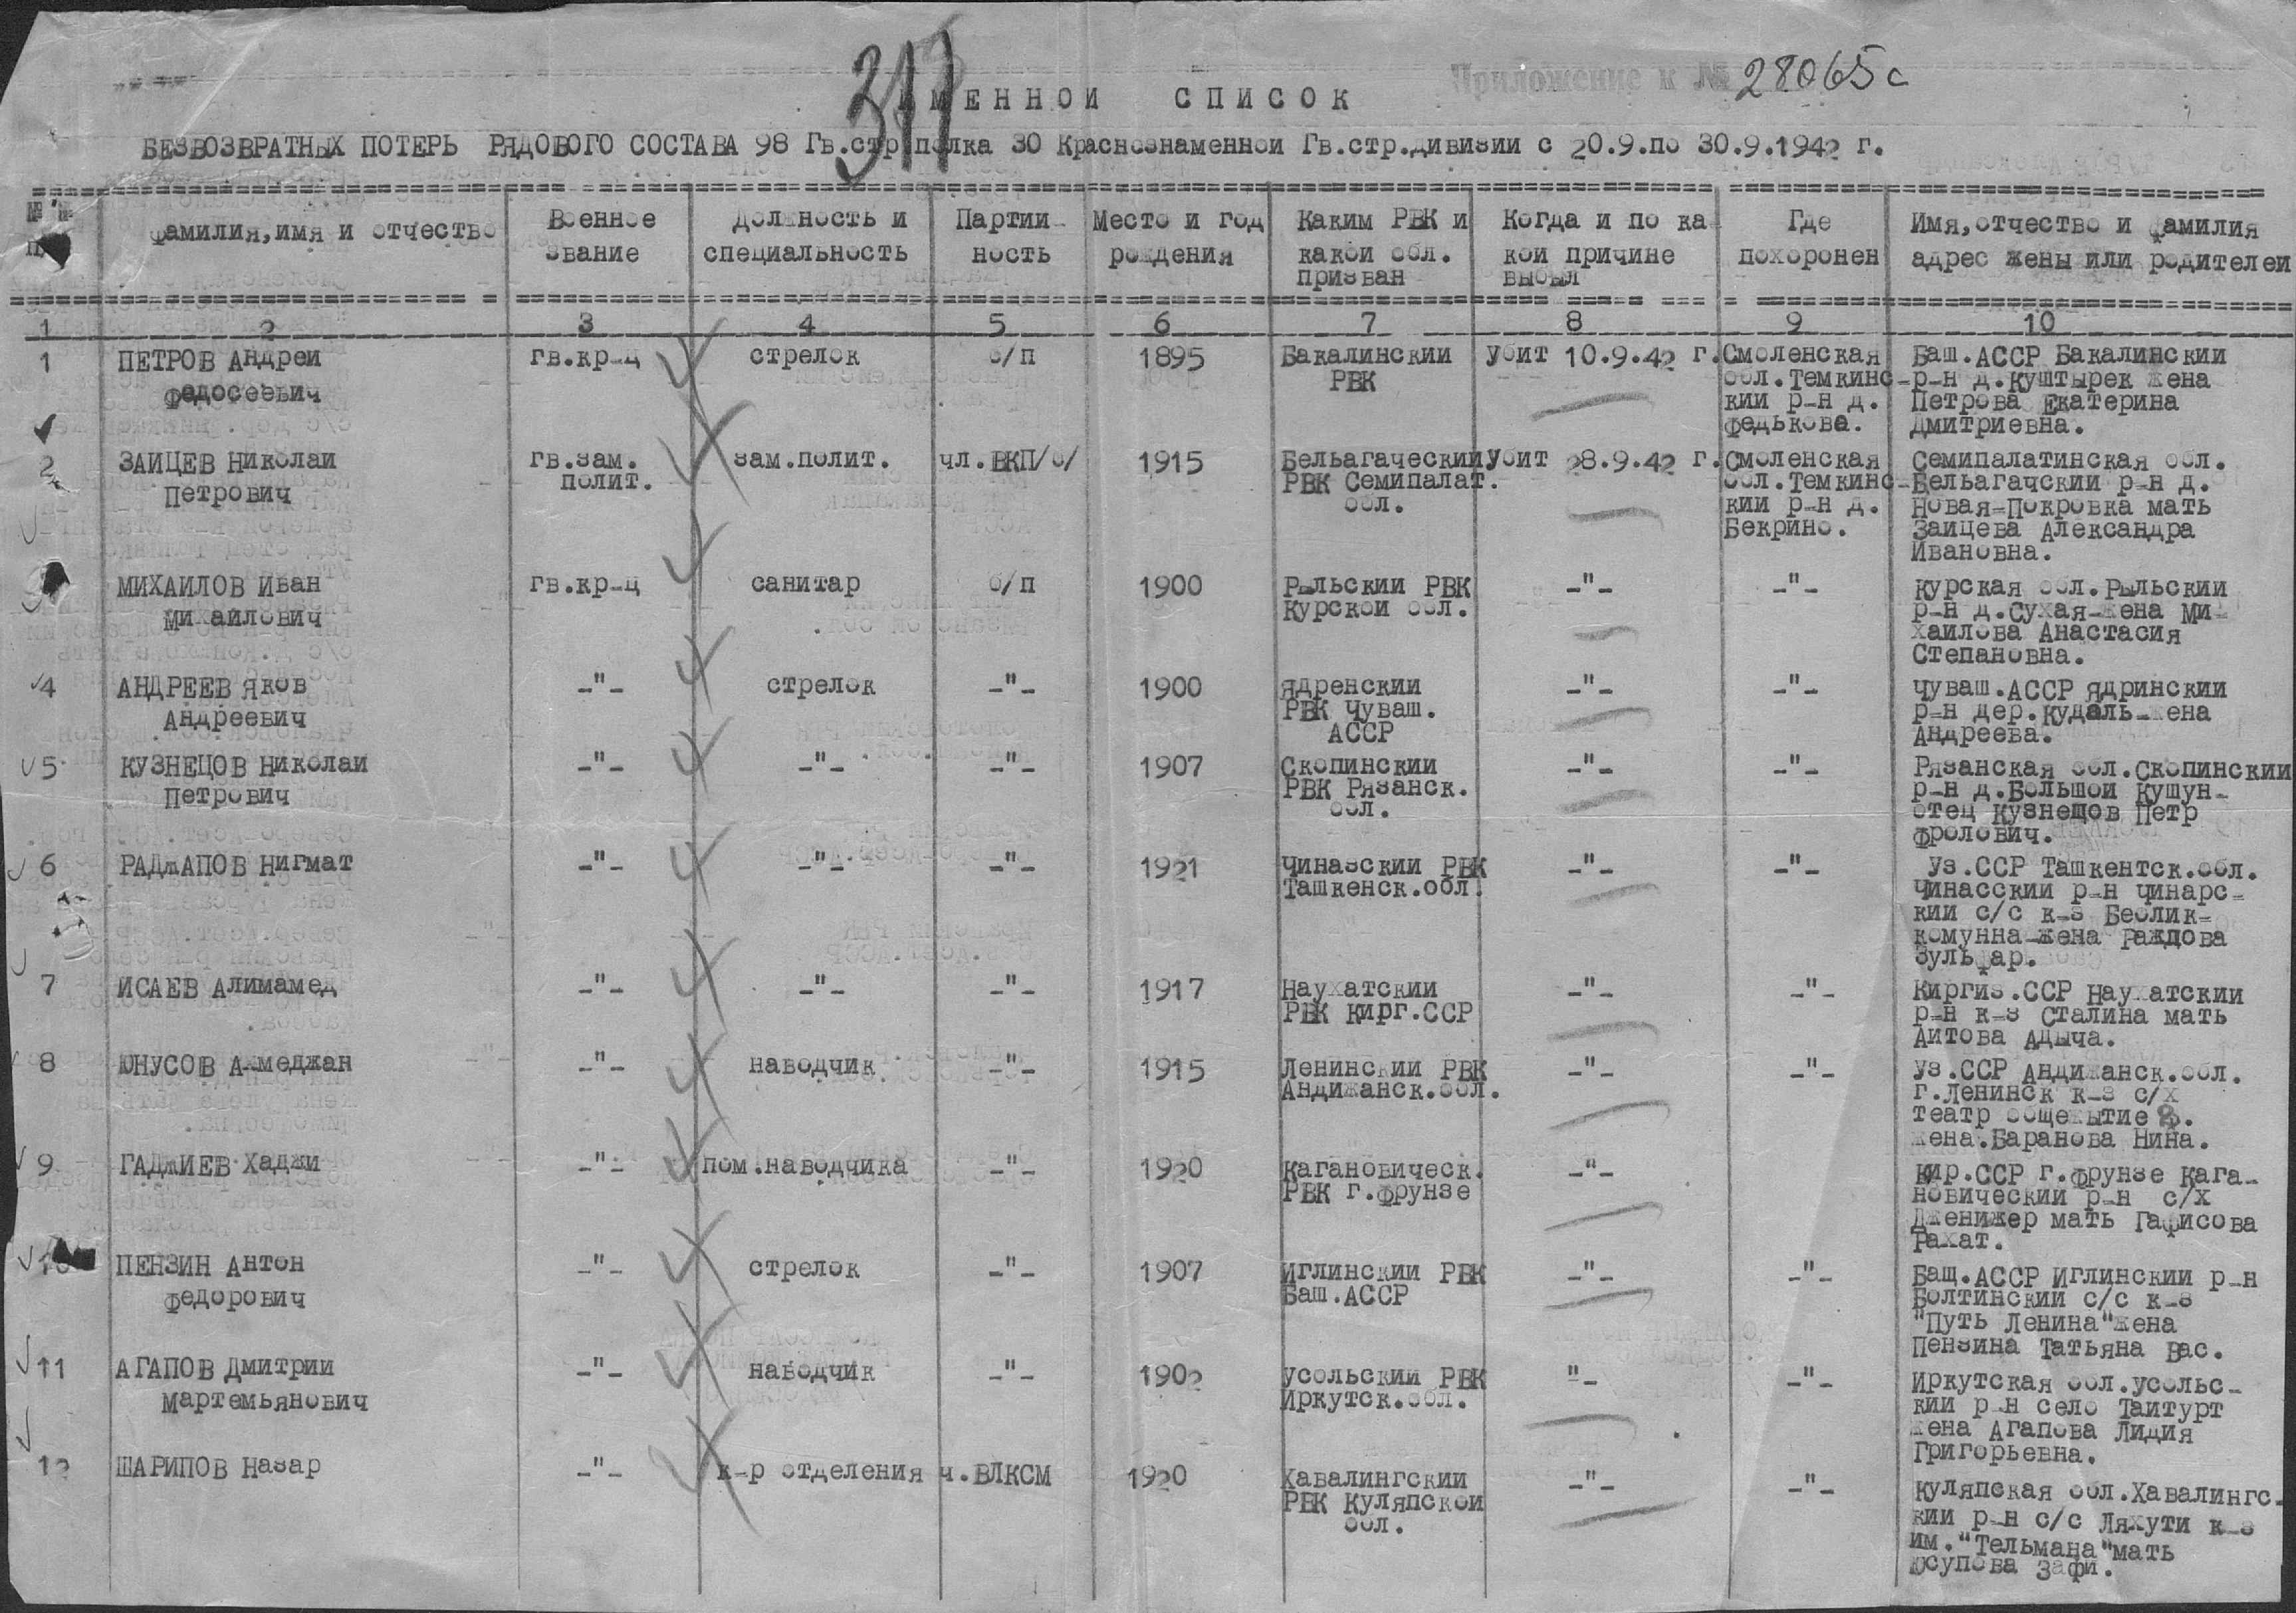 317
Приложение к № 28065с
ИМЕННОЙ СПИСОК
БЕЗВОЗВРАТНЫХ ПОТЕРЬ РЯДОВОГО СОСТАВА 98 Гв.стр полка 30 Краснознаменной Гв.стр.дивизии с 20.9.по 30.9.1942 г.
№ №
Фамилия,имя и отчество
Военное
звание
Должность и
специальность
Партий-
ность
Место и год
рождения
Каким РВК и
какой обл.
призван
Когда и по ка
кой причине
выбыл
Где
похоронен
Имя,отчество и фамилия
адрес жены или родителей
1 2 3 4 5 6 7 8 9 10
1 ПЕТРОВ Андрей
Федосеевич
гв.кр-ц
стрелок
б/п
1895
Бакалинский
РВК
Убит 10.9.42 г.
Смоленская
обл.Темкинс-
кий р-н д.
Федькова.
Баш.АССР Бакалинский
р-н д.Куштырек жена
Петрова Екатерина
Дмитриевна.
2 ЗАЙЦЕВ Николай
Петрович
гв.зам.
полит.
зам.полит.
чл.ВКП/б/
1915
Бельагаческий
РВК Семипалат.
обл.
Убит 28.9.42 г.
Смоленская
обл.Темкинс-
кий р-н д.
Бекрино.
Семипалатинская обл.
Бельагачский р-н д.
Новая-Покровка мать
Зайцева Александра
Ивановна.
МИХАЙЛОВ Иван
Михайлович
гв.кр-ц
санитар
б/п
1900
Рыльский РВК
Курской обл.
-"-
-"-
Курская обл.Рыльский
р-н д.Сухая-жена Ми-
хайлова Анастасия
Степановна.
4 АНДРЕЕВ Яков
Андреевич
-"-
стрелок
-"-
1900
Ядренский
РВК Чуваш.
АССР
-"-
-"-
Чуваш.АССР Ядринский
р-н дер.Кудаль-жена
Андреева.
5 КУЗНЕЦОВ Николай
Петрович
-"-
-"-
-"-
1907
Скопинский
РВК Рязанск.
обл.
-"-
-"-
Рязанская обл.Скопинский
р-н д.Большой Кушун-
отец Кузнецов Петр
Фролович.
6 РАДЖАПОВ Нигмат
-"-
-"-
-"-
1921
Чиназский РВК
Ташкенск.обл.
-"-
-"-
Уз.ССР Ташкентск.обл.
Чинасский р-н Чинарс-
кий с/с к-з Беолик-
комунна-жена Раждова
Зульфар.
7 ИСАЕВ Алимамед
-"-
-"-
-"-
1917
Наухатский
РВК Кирг.ССР
-"-
-"-
Киргиз.ССР Наухатский
р-н к-з Сталина мать
Аитова Адыча.
8 ЮНУСОВ Ахмеджан
-"-
наводчик
-"-
1915
Ленинский РВК
Андижанск.обл.
-"-
-"-
Уз.ССР Андижанск.обл.
г.Ленинск к-з с/х
театр общежытие 8.
жена.Баранова Нина.
9 ГАДЖИЕВ Хаджи
-"-
пом.наводчика
-"-
1920
Кагановическ.
РВК г.Фрунзе
-"-
Кир.ССР г.Фрунзе Кага-
новический р-н с/х
Дженижер мать Гафисова
Рахат.
10 ПЕНЗИН Антон
Федорович
-"-
стрелок
-"-
1907
Иглинский РВК
Баш.АССР
-"-
-"-
Бащ.АССР Иглинский р-н
Болтинский с/с к-з
"Путь Ленина"жена
Пензина Татьяна Вас.
11 АГАПОВ Дмитрий
Мартемьянович
-"-
наводчик
-"-
1902
Усольский РВК
Иркутск.обл.
"-
-"-
Иркутская обл.Усольс-
кий р-н село Тайтурт
жена Агапова Лидия
Григорьевна.
12 ШАРИПОВ Назар
-"-
к-р отделения
ч.ВЛКСМ
1920
Хавалингский
РВК Куляпской
обл.
-"-
-"-
Куляпская обл.Хавалингс-
кий р-н с/с Ляхути к-з
им."Тельмана"мать
Юсупова Зафи.